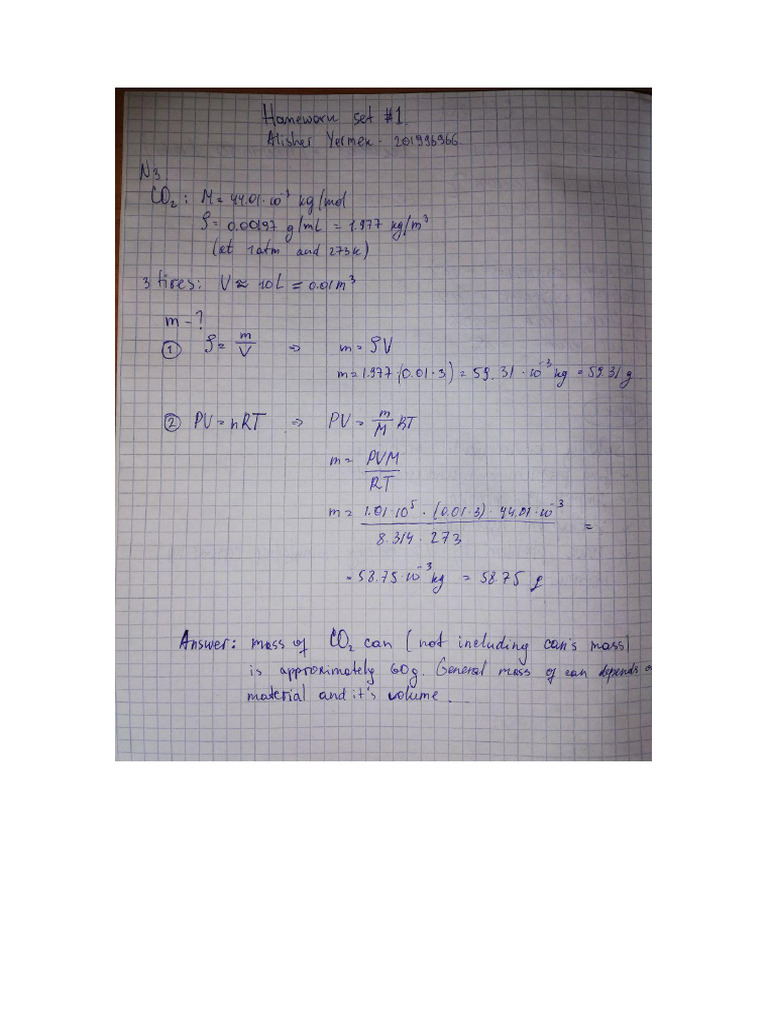 Homework set #1.
Alisher Yermek - 201996966.
N3
CO₂: M = 44.01·10⁻³ kg/mol
ρ = 0.00197 g/mL = 1.977 kg/m³
(at 1atm and 273K)
3 tires: V ≈ 10L = 0.01m³
m - ?
① ρ = m/V => m = ρV
m = 1.977·(0.01·3) = 59.31·10⁻³ kg = 59.31 g
② PV = nRT => PV = m/M RT
m = PVM/RT
m = 1.01·10⁵·(0.01·3)·44.01·10⁻³ / 8.314·273 =
= 58.75·10⁻³ kg = 58.75 g
Answer: mass of CO₂ can (not including can's mass)
is approximately 60g. General mass of can depends o
material and it's volume.